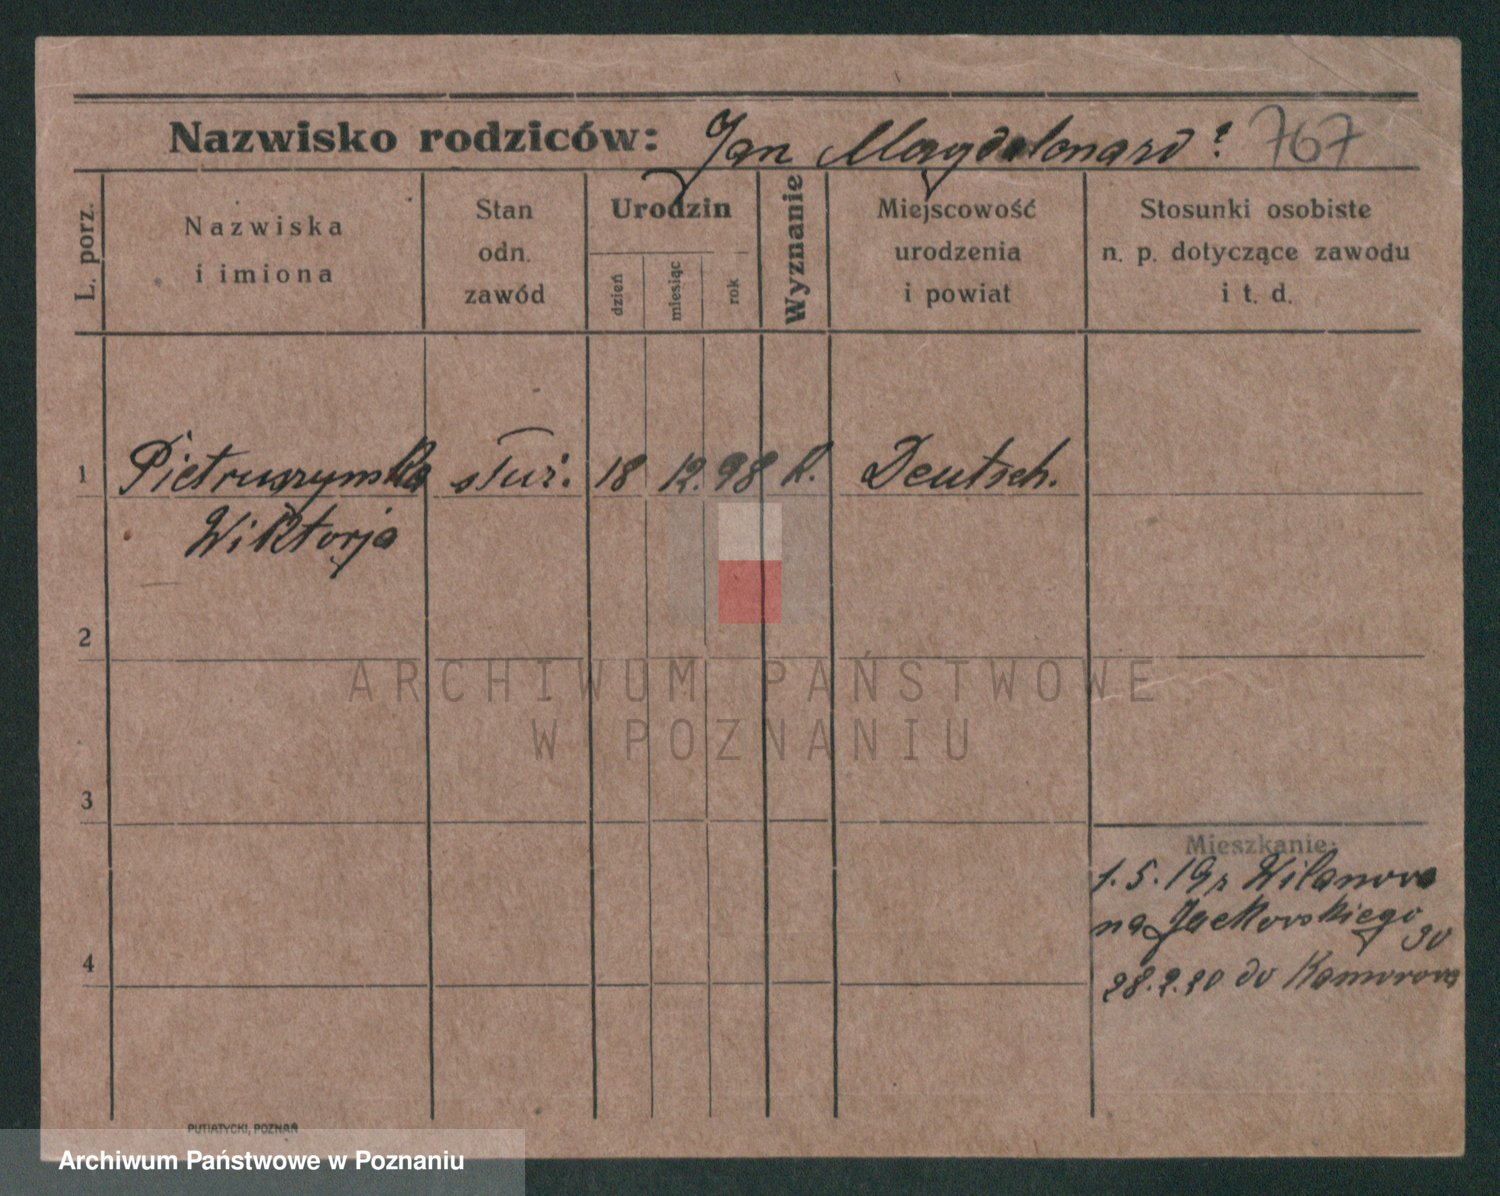 Nazwisko rodziców: Jan 767
L. porz.
Nazwiska
i imiona
Stan
odn.
zawód
Urodzin
dzień
miesiąc
rok
Wyznanie
Miejscowość
urodzenia
i powiat
Stosunki osobiste
n. p. dotyczące zawodu
i t. d.
1 Pietruszynska służ. 18 12. 98 k. Deutsch.
Wiktorja
2
ARCHIWUM PAŃSTWOWE
W POZNANIU
3
Mieszkanie:
1.5.19 z Wilanowa
na Jackowskiego 30
4
28.2.20 do Komorowa
PUTIATYCKI, POZNAŃ
Archiwum Państwowe w Poznaniu